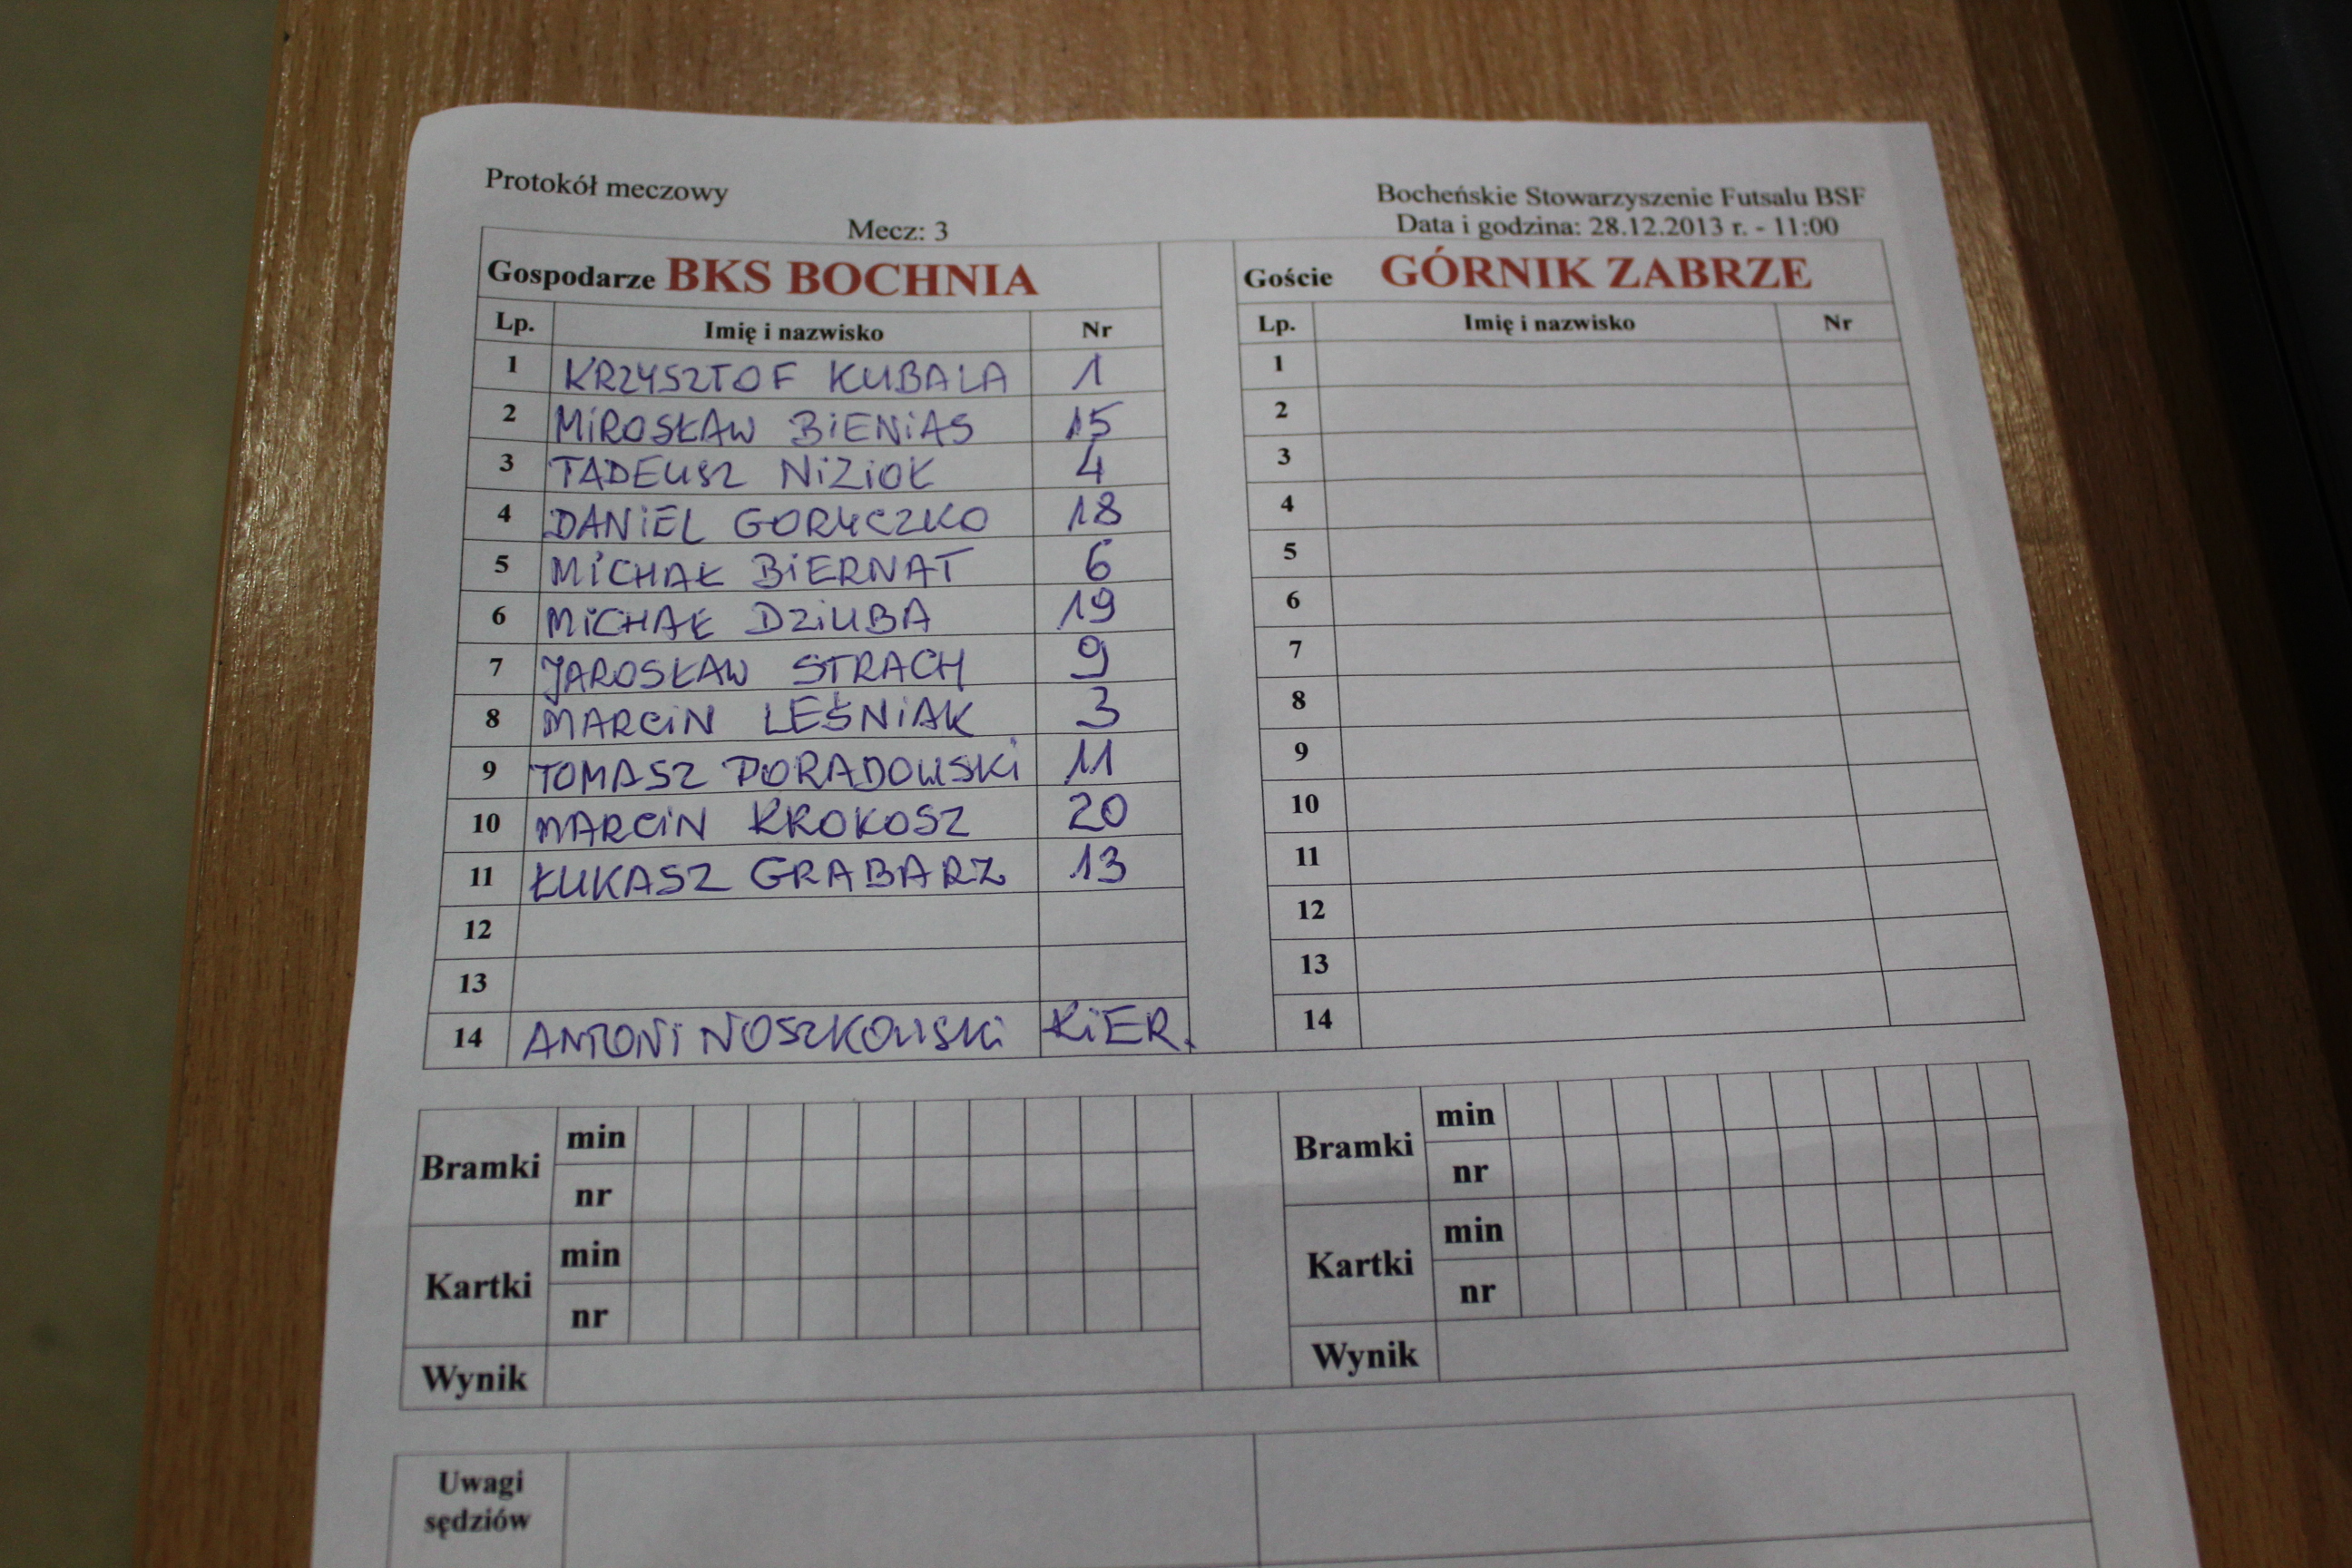 Protokół meczowy
Bocheńskie Stowarzyszenie Futsalu BSF
Mecz: 3
Data i godzina: 28.12.2013 r. - 11:00
Gospodarze BKS BOCHNIA
Lp. Imię i nazwisko Nr
1 KRZYSZTOF KUBALA 1
2 MIROSŁAW BIENIAS 15
3 TADEUSZ NIZIOŁ 4
4 DANIEL GORYCZKO 18
5 MICHAŁ BIERNAT 6
6 MICHAŁ DZIUBA 19
7 JAROSŁAW STRACH 9
8 MARCIN LEŚNIAK 3
9 TOMASZ PORADOWSKI 11
10 MARCIN KROKOSZ 20
11 ŁUKASZ GRABARZ 13
12
13
14 ANTONI NOSZKOWSKI KIER.
Goście GÓRNIK ZABRZE
Lp. Imię i nazwisko Nr
1
2
3
4
5
6
7
8
9
10
11
12
13
14
Bramki min
nr
Kartki min
nr
Wynik
Bramki min
nr
Kartki min
nr
Wynik
Uwagi
sędziów